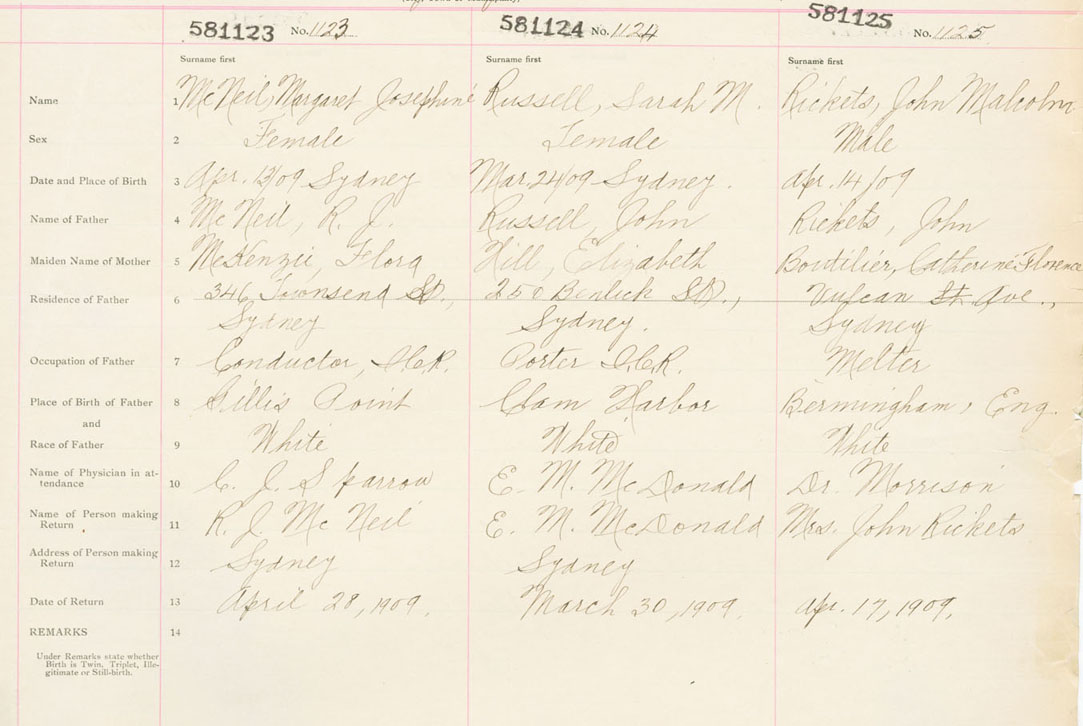 581123 No. 1123 581124 No. 1124 581125 No. 1125
Surname first Surname first Surname first
Name 1 McNeil, Margaret Josephine Russell, Sarah M. Rickets, John Malcolm
Sex 2 Female Female Male
Date and Place of Birth 3 Apr. 13/09 Sydney Mar. 24/09 Sydney. Apr. 14/09
Name of Father 4 McNeil, R. J. Russell, John Rickets, John
Maiden Name of Mother 5 McKenzie, Flora Hill, Elizabeth Boutilier, Catherine Florence
Residence of Father 6 346 Townsend St., 250 St., Vulcan St. Ave.,
Sydney Sydney. Sydney
Occupation of Father 7 Conductor, I.C.R. Porter I.C.R. Melter
Place of Birth of Father 8 Gillis Point Clam Harbor Bermingham, Eng.
and
Race of Father 9 White White White
Name of Physician in at-
tendance 10 C. J. Sparrow E. M. McDonald Dr. Morrison
Name of Person making
Return 11 R. J. McNeil E. M. McDonald Mrs. John Rickets
Address of Person making
Return 12 Sydney Sydney
Date of Return 13 April 28, 1909. March 30, 1909. Apr. 17, 1909.
REMARKS 14
Under Remarks state whether
Birth is Twin, Triplet, Ille-
gitimate or Still-birth.